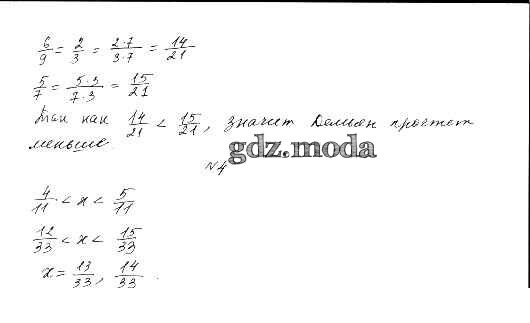 6/9 = 2/3 = 2·7/3·7 = 14/21
5/7 = 5·3/7·3 = 15/21
Так как 14/21 < 15/21, значит Демьян простоит
меньше.
gdz.moda
№4
4/11 < x < 5/11
12/33 < x < 15/33
x = 13/33, 14/33.